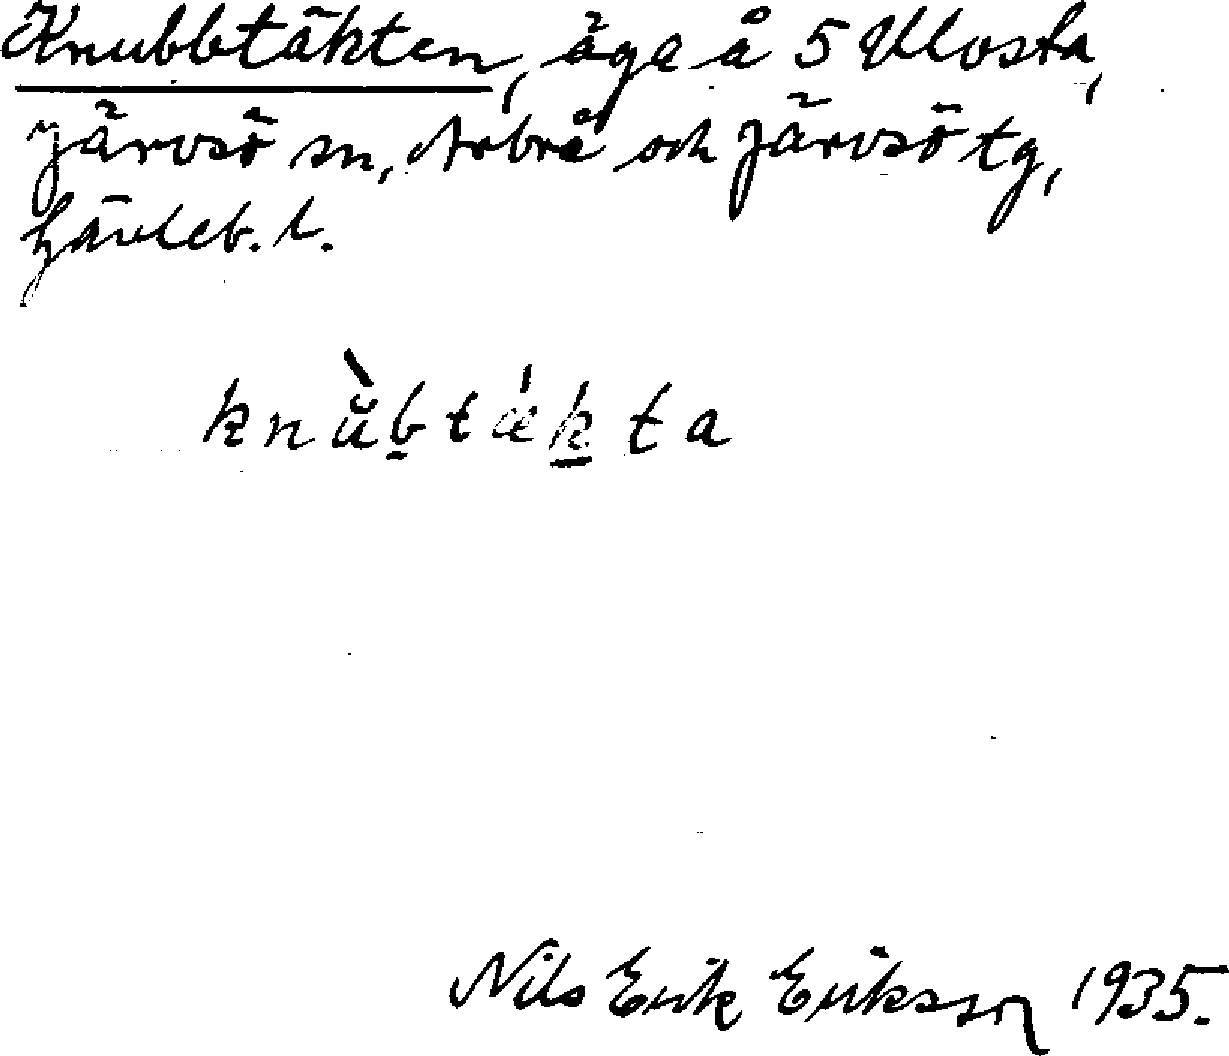 Knubbtäkten, äga å 5 Ulosta,
Järvsö sn, Arbrå och Järvsö tg,
Gävleb. l.
knŭ̀btǽkta
Nils Erik Eriksson 1935.